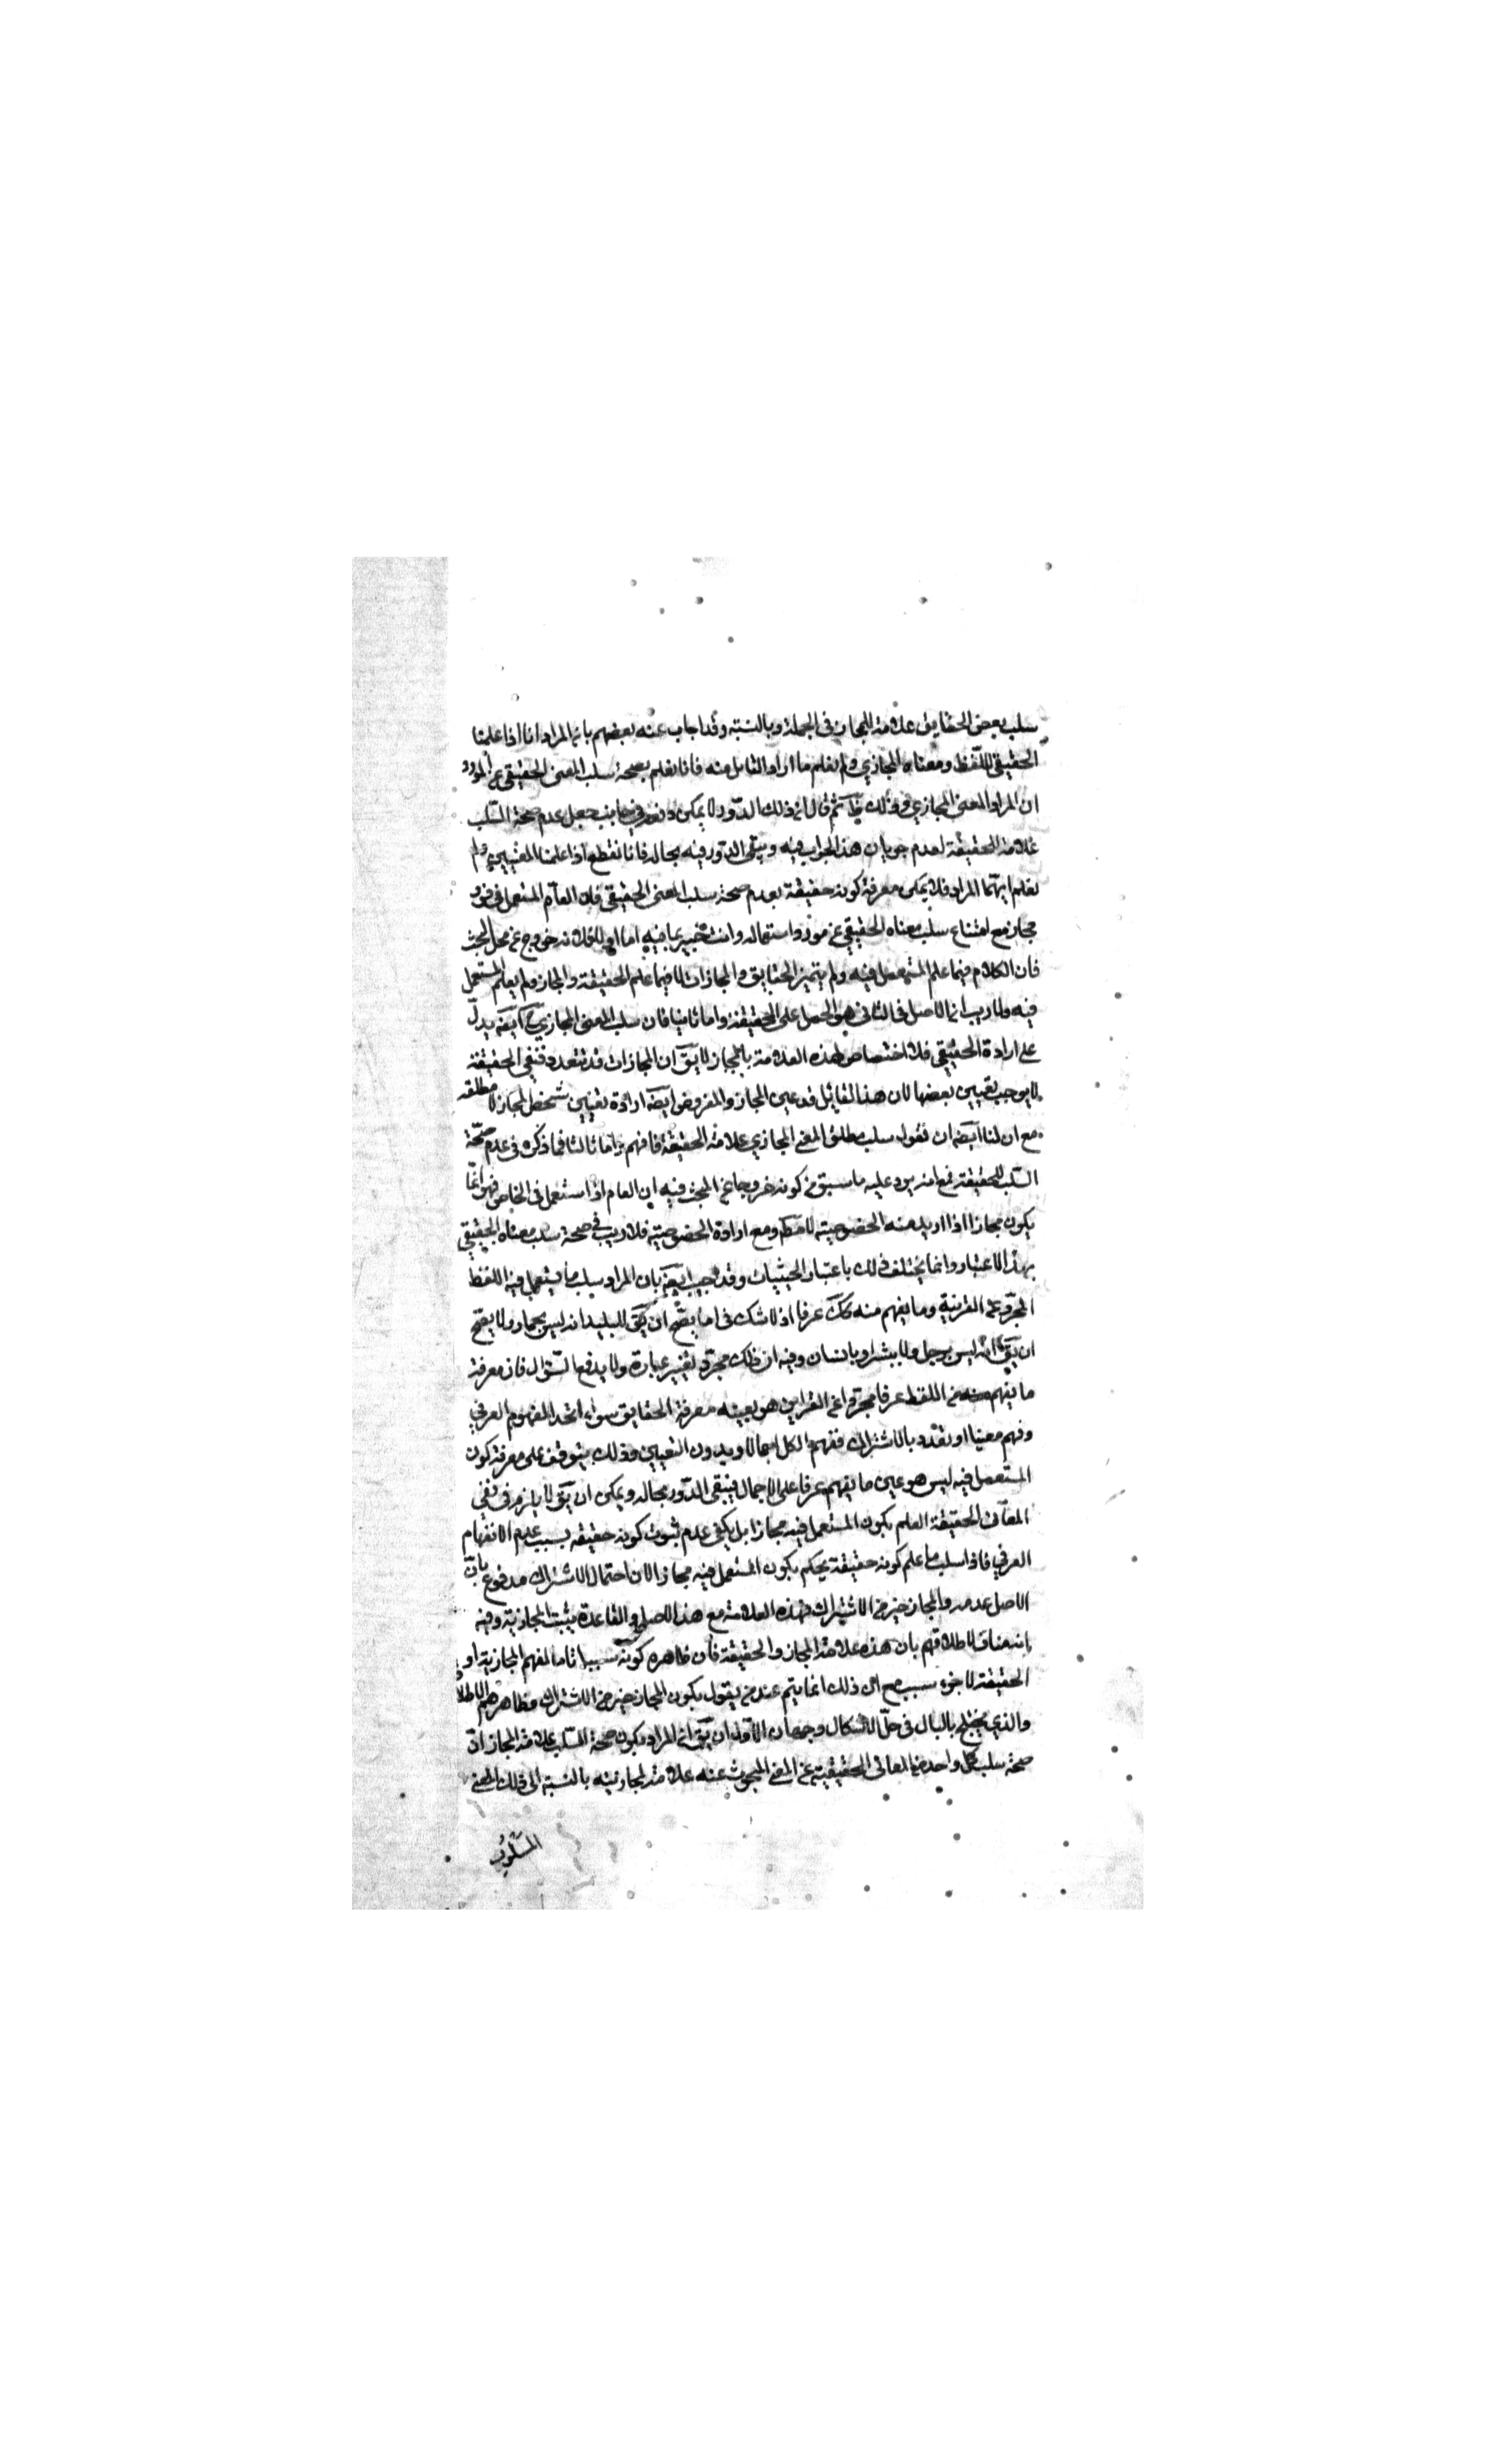 سلب بعض الحقايق علامة للمجاز في الجملة وبالنسبة وقد اجاب عنه بعضهم بان المراد انا اذا علمنا
الحقيقي للفظ ومعناه المجازي ولم نعلم ما اراد القائل منه فانا نعلم بصحة سلب المعنى الحقيقي عن المورد
ان المراد المعنى المجازي وذلك ظ ثم قال ان ذلك الدور لا يمكن دفعه في جانب جعل عدم صحة السلب
علامة للحقيقة لعدم جريان هذا الجواب فيه ويبقى الدور فيه بحاله فانا نقطع اذا علمنا المعنيين ولم
نعلم ايهما المراد فلا يمكن معرفة كونه حقيقة بعدم صحة سلب المعنى الحقيقي فان العام المستعمل في فرد
مجاز مع امتناع سلب معناه الحقيقي عن مورد استعماله وانت خبير بما فيه اما اولا فلانه خروج عن محل البحث
فان الكلام فيما علم المستعمل فيه ولم يتميز الحقايق والمجازات لا فيما علم الحقيقة والمجاز ولم يعلم المستعمل
فيه ولا ريب ان الاصل في الثاني هو الحمل على الحقيقة واما ثانيا فان سلب المعنى المجازي ح ايضه يدل
على ارادة الحقيقي فلا اختصاص لهذه العلامة بالمجاز لا يق ان المجازات قد تتعدد فنفي الحقيقة
لا يوجب تعيين بعضها لان هذا القائل قد عين المجاز والمفروض ايضه ارادة تعيين شخص المجاز لا مطلقه
مع ان لنا ايضه ان نقول سلب مطلق المعنى المجازي علامة الحقيقة فافهم واما ثالثا فما ذكره في عدم صحة
السلب للحقيقة فمع انه يرد عليه ما سبق من كونه خروجا عن المبحث فيه ان العام اذا استعمل في الخاص فهو انما
يكون مجازا اذا اريد منه الخصوصية لا مط ومع ارادة الخصوصية فلا ريب في صحة سلب معناه الحقيقي
بهذا الاعتبار وانما يختلف ذلك باعتبار الحيثيات وقد يجيب ايضه بان المراد سلب ما يستعمل فيه اللفظ
المجرد عن القرينة وما يفهم منه كك عرفا اذ لا شك في انه يصح ان يق للبليد انه ليس بحمار ولا يصح
ان يق انه ليس برجل ولا ببشر او بانسان وفيه ان ذلك مجرد تغيير عبارة ولا يدفع السؤال فان معرفة
ما يفهم من اللفظ عرفا مجردا عن القراين هو بعينه معرفة الحقايق سواء اتحد المفهوم العرفي
وفهم معينا او تعدد بالاشتراك ففهم الكل اجمالا وبدون التعيين وذلك يتوقف على معرفة كون
المستعمل فيه ليس هو عين ما يفهم عرفا على الاجمال فيبقى الدور بحاله ويمكن ان يق لا يلزم في نفي
المعاني الحقيقة العلم بكون المستعمل فيه مجازا بل يكفي عدم ثبوت كونه حقيقة بسبب عدم الانفهام
العرفي فاذا سلب ما علم كونه حقيقة يحكم بكون المستعمل فيه مجازا لان احتمال الاشتراك مدفوع بان
الاصل عدمه والمجاز خير من الاشتراك فهذه العلامة مع هذا الاصل والقاعدة يثبت المجازية وفيه
انه مناف لاطلاقهم بان هذه علامة المجاز والحقيقة فان ظاهره كونه سببا تاما لفهم المجازية او
الحقيقة لا جزء سبب مع ان ذلك انما يتم عند من يقول بكون المجاز خير من الاشتراك وظاهرهم الاطلاق
والذي يختلج بالبال في حل الاشكال وجهان الاول ان يق ان المراد بكون صحة السلب علامة المجاز ان
صحة سلب كل واحد من المعاني الحقيقية عن المعنى المبحوث عنه علامة لمجازيته بالنسبة الى ذلك المعنى
المسلوب